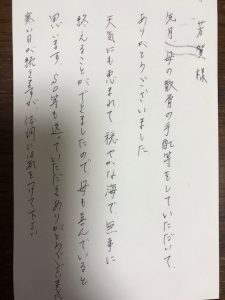 芳賀様
先月、母の散骨の手配等をしていただいて
ありがとうございました
天気にも恵まれて穏やかな海で無事に
終えることができましたので、母も喜んでいると
思います。SD等も送っていただきありがとうございました
寒い日が続きますが、体調には気をつけて下さい